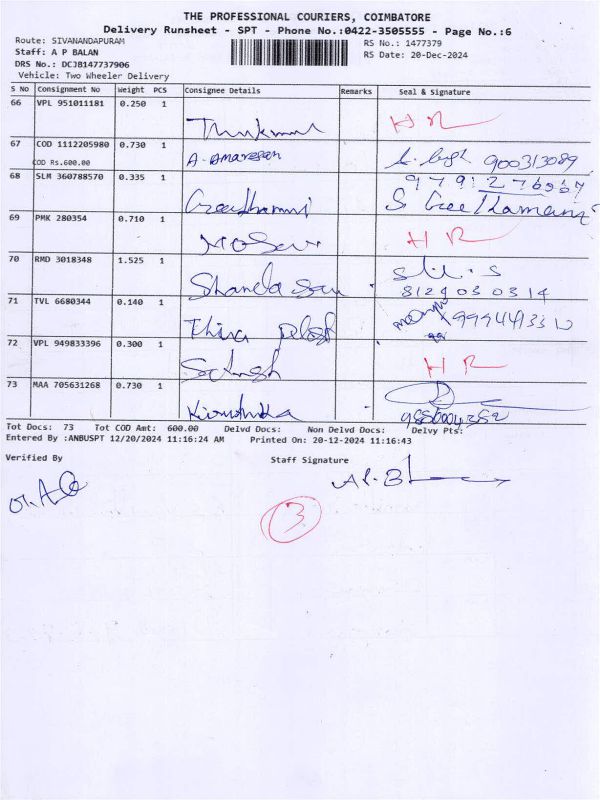 THE PROFESSIONAL COURIERS, COIMBATORE
Delivery Runsheet - SPT - Phone No.:0422-3505555 - Page No.:6
Route: SIVANANDAPURAM
RS No.: 1477379
Staff: A P BALAN
RS Date: 20-Dec-2024
DRS No.: DCJ8147737906
Vehicle: Two Wheeler Delivery
S No Consignment No Weight PCS Consignee Details Remarks Seal & Signature
66 VPL 951011181 0.250 1
H R
67 COD 1112205980 0.730 1 A. Amaresan 900313089
COD Rs.600.00
68 SLM 360788570 0.335 1
S Geethamani
69 PMK 280354 0.710 1 H R
70 RMD 3018348 1.525 1
8124030314
71 TVL 6680344 0.140 1
9994413310
72 VPL 949833396 0.300 1 H R
73 MAA 705631268 0.730 1
Tot Docs: 73 Tot COD Amt: 600.00 Delvd Docs: Non Delvd Docs: Delvy Pts:
Entered By :ANBUSPT 12/20/2024 11:16:24 AM Printed On: 20-12-2024 11:16:43
Verified By Staff Signature
3